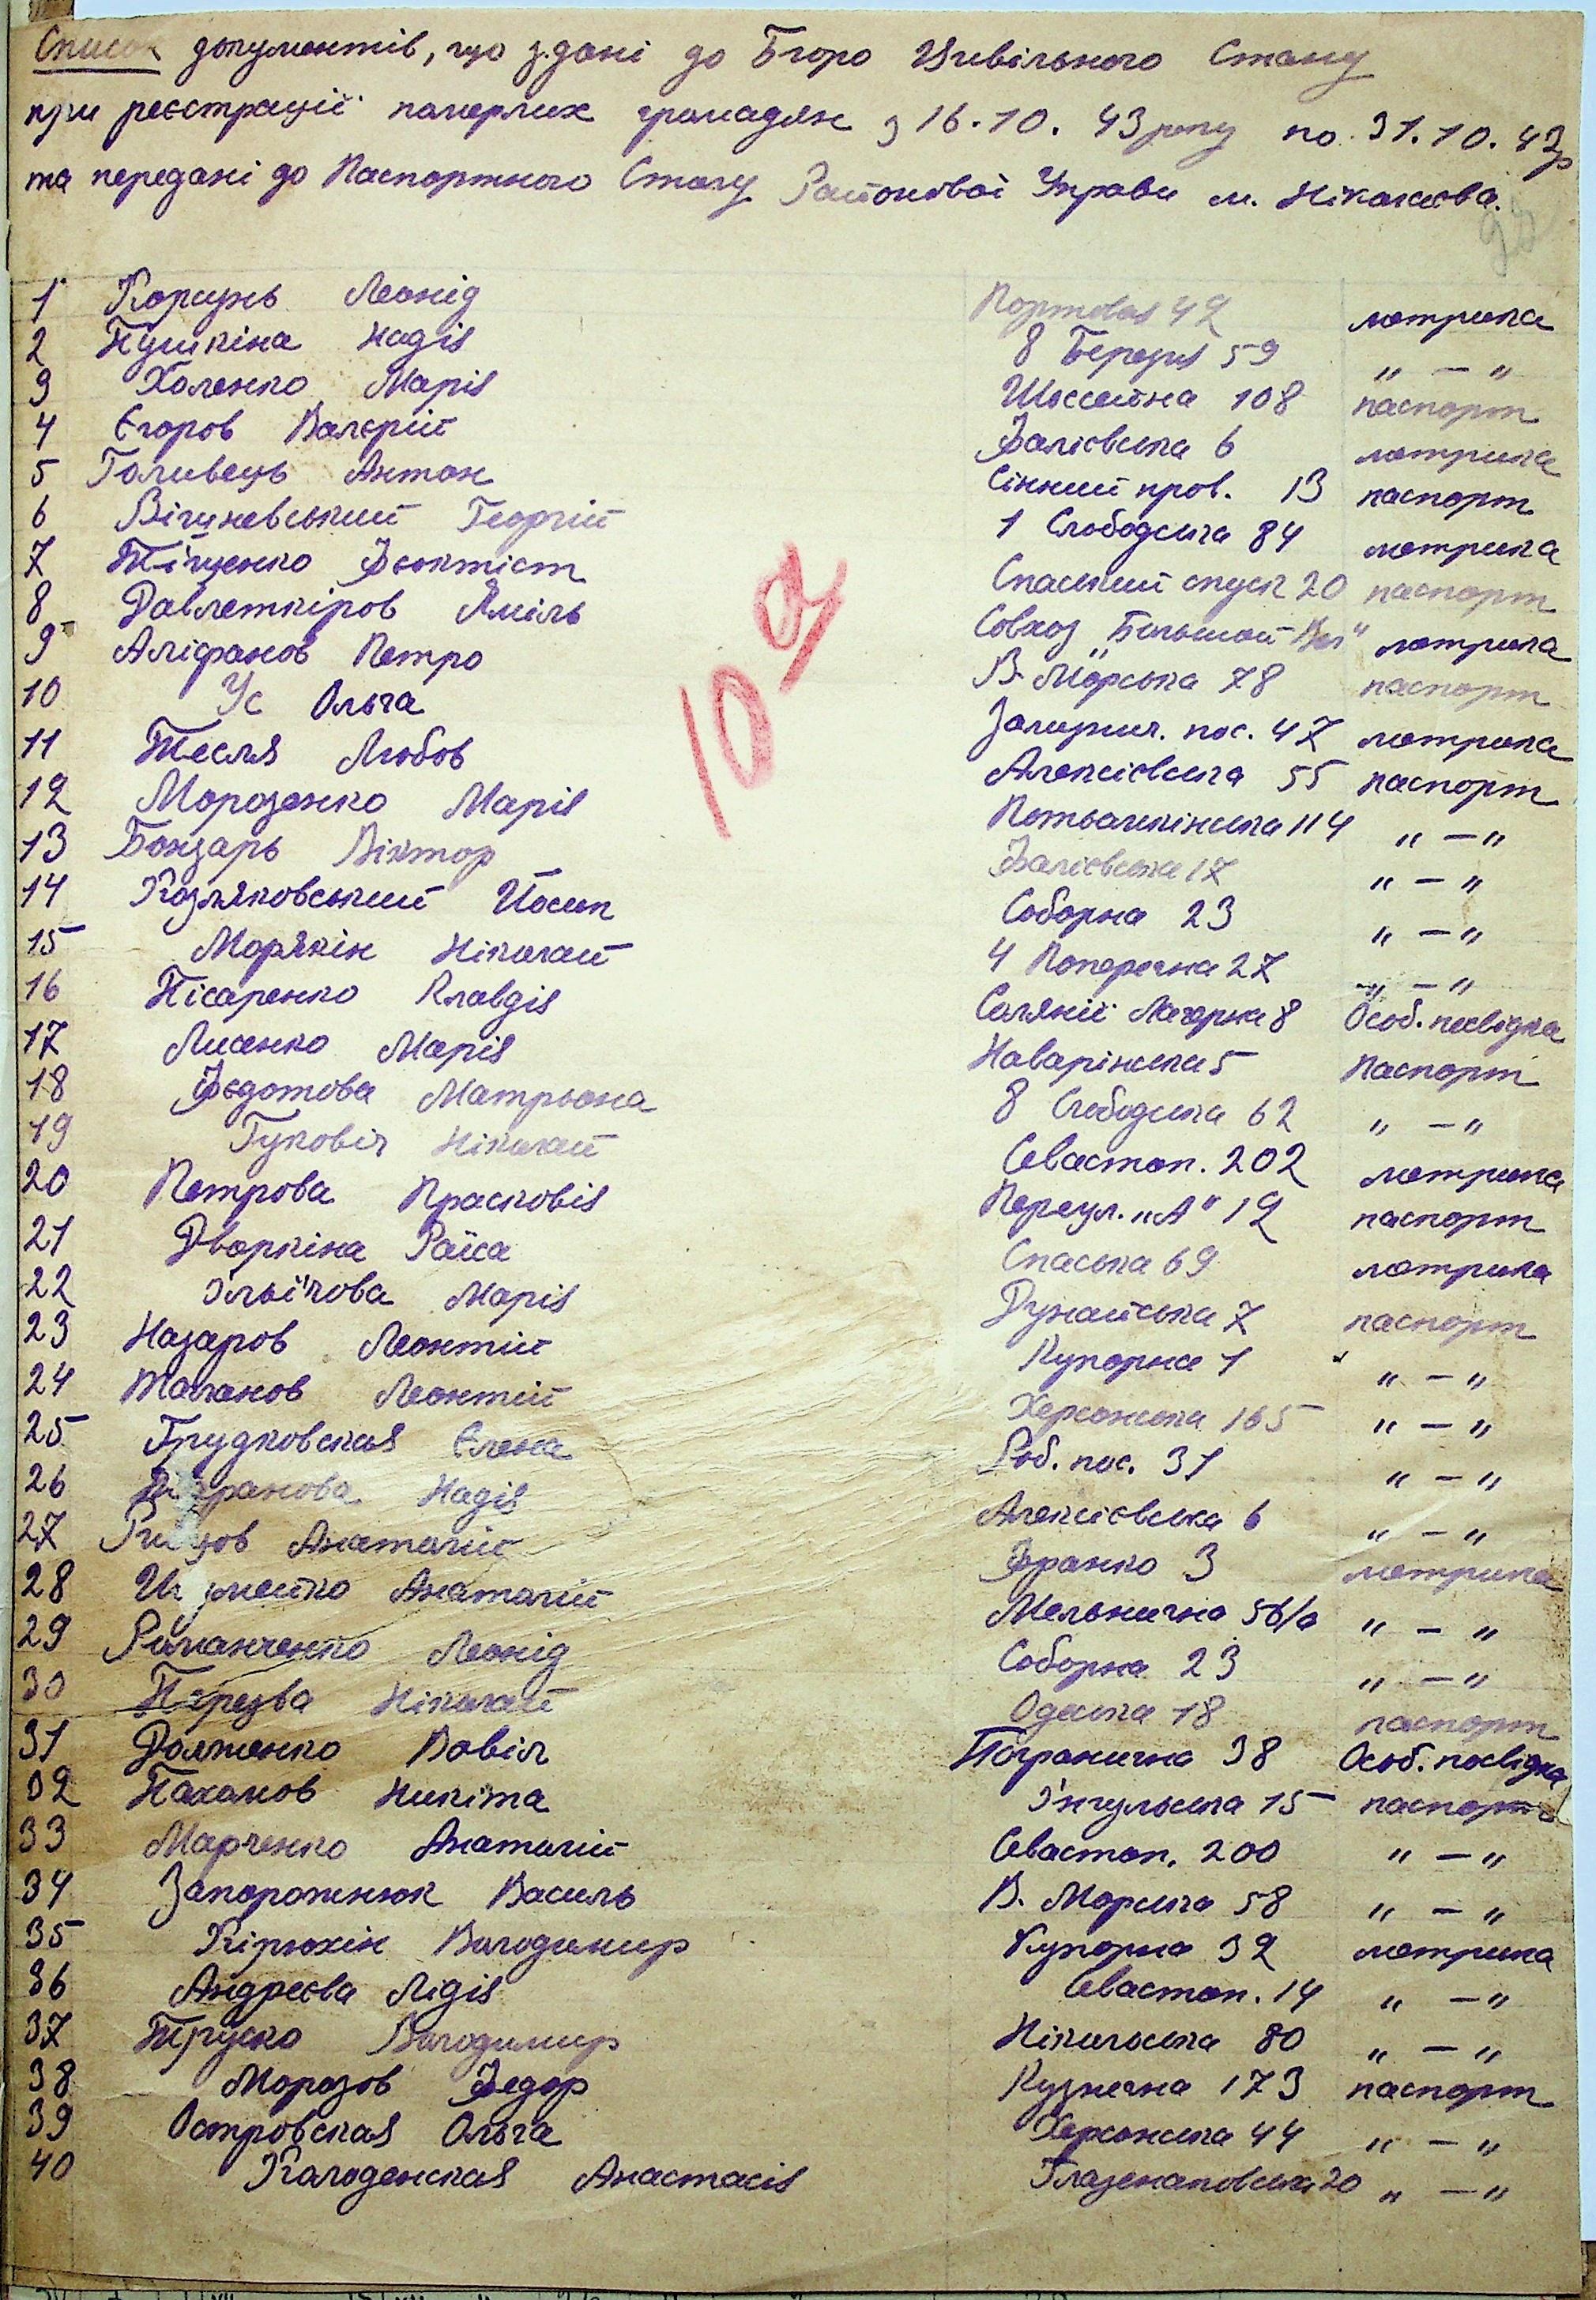 Список документів, що здані до Бюро Цивільного Стану
при реєстрації померлих громадян з 16.10.43 року по 31.10.43р
та передані до Паспортного Столу Районової Управи м. Ніколаєва.
1 Коршунь Леонід Портовая 42 метрика
2 Пушкіна Надія 8 Березня 59 „ — „
3 Холенко Марія Шоссейна 108 паспорт
4 Єгоров Валєрій Фалієвська 6 метрика
5 Голивець Антон Сінний пров. 13 паспорт
6 Вішневський Георгій 1 Слободська 84 метрика
7 Тіщенко Феоктіст Спаський спуск 20 паспорт
8 Давлеткіров Яміль Совхоз „Большой" метрика
9 Аліфанов Петро В. Морська 78 паспорт
10 Ус Ольга пос. 47 метрика
11 Тесля Любов Алексієвська 55 паспорт
12 Морозенко Марія Потьомкінська 114 „ — „
13 Бондарь Віктор Фалієвська 17 „ — „
14 Козляковський Йосип Соборна 23 „ — „
15 Морякін Ніколай 4 Поперечна 27 „ — „
16 Пісаренко Клавдія Соляні 8 Особ. посвідка
17 Лисенко Марія Наварінська 5 Паспорт
18 Федотова Матрьона 8 Слободська 62 „ — „
19 Гуковіч Ніколай Севастоп. 202 метрика
20 Петрова Прасковія Переул. „А" 12 паспорт
21 Дворкіна Раїса Спаська 69 метрика
22 Ільїчова Марія Дунайська 7 паспорт
23 Назаров Леонтій Купорна 1 „ — „
24 Таланов Леонтій Херсонська 165 „ — „
25 Грудковская Єлена Роб. пос. 31 „ — „
26 Надія Алексієвська 6 „ — „
27 Анатолій Франко 3 метрика
28 Анатолій Мельнична 56/а „ — „
29 Романченко Леонід Соборна 23 „ — „
30 Перезва Ніколай Одеська 18 паспорт
31 Долженко Вовіл Погранична 38 Особ. посвідка
32 Паханов Нікіта Інгульська 15 паспорт
33 Марченко Анатолій Севастоп. 200 „ — „
34 Запорожнюк Василь В. Морська 58 „ — „
35 Кірюхін Володимир Купорна 32 метрика
36 Андреєва Лідія Севастоп. 14 „ — „
37 Труско Володимир Нікольська 80 „ — „
38 Морозов Федор Кузнечна 173 паспорт
39 Островская Ольга Херсонська 44 „ — „
40 Колоденская Анастасія Глазенаповська 20 „ — „